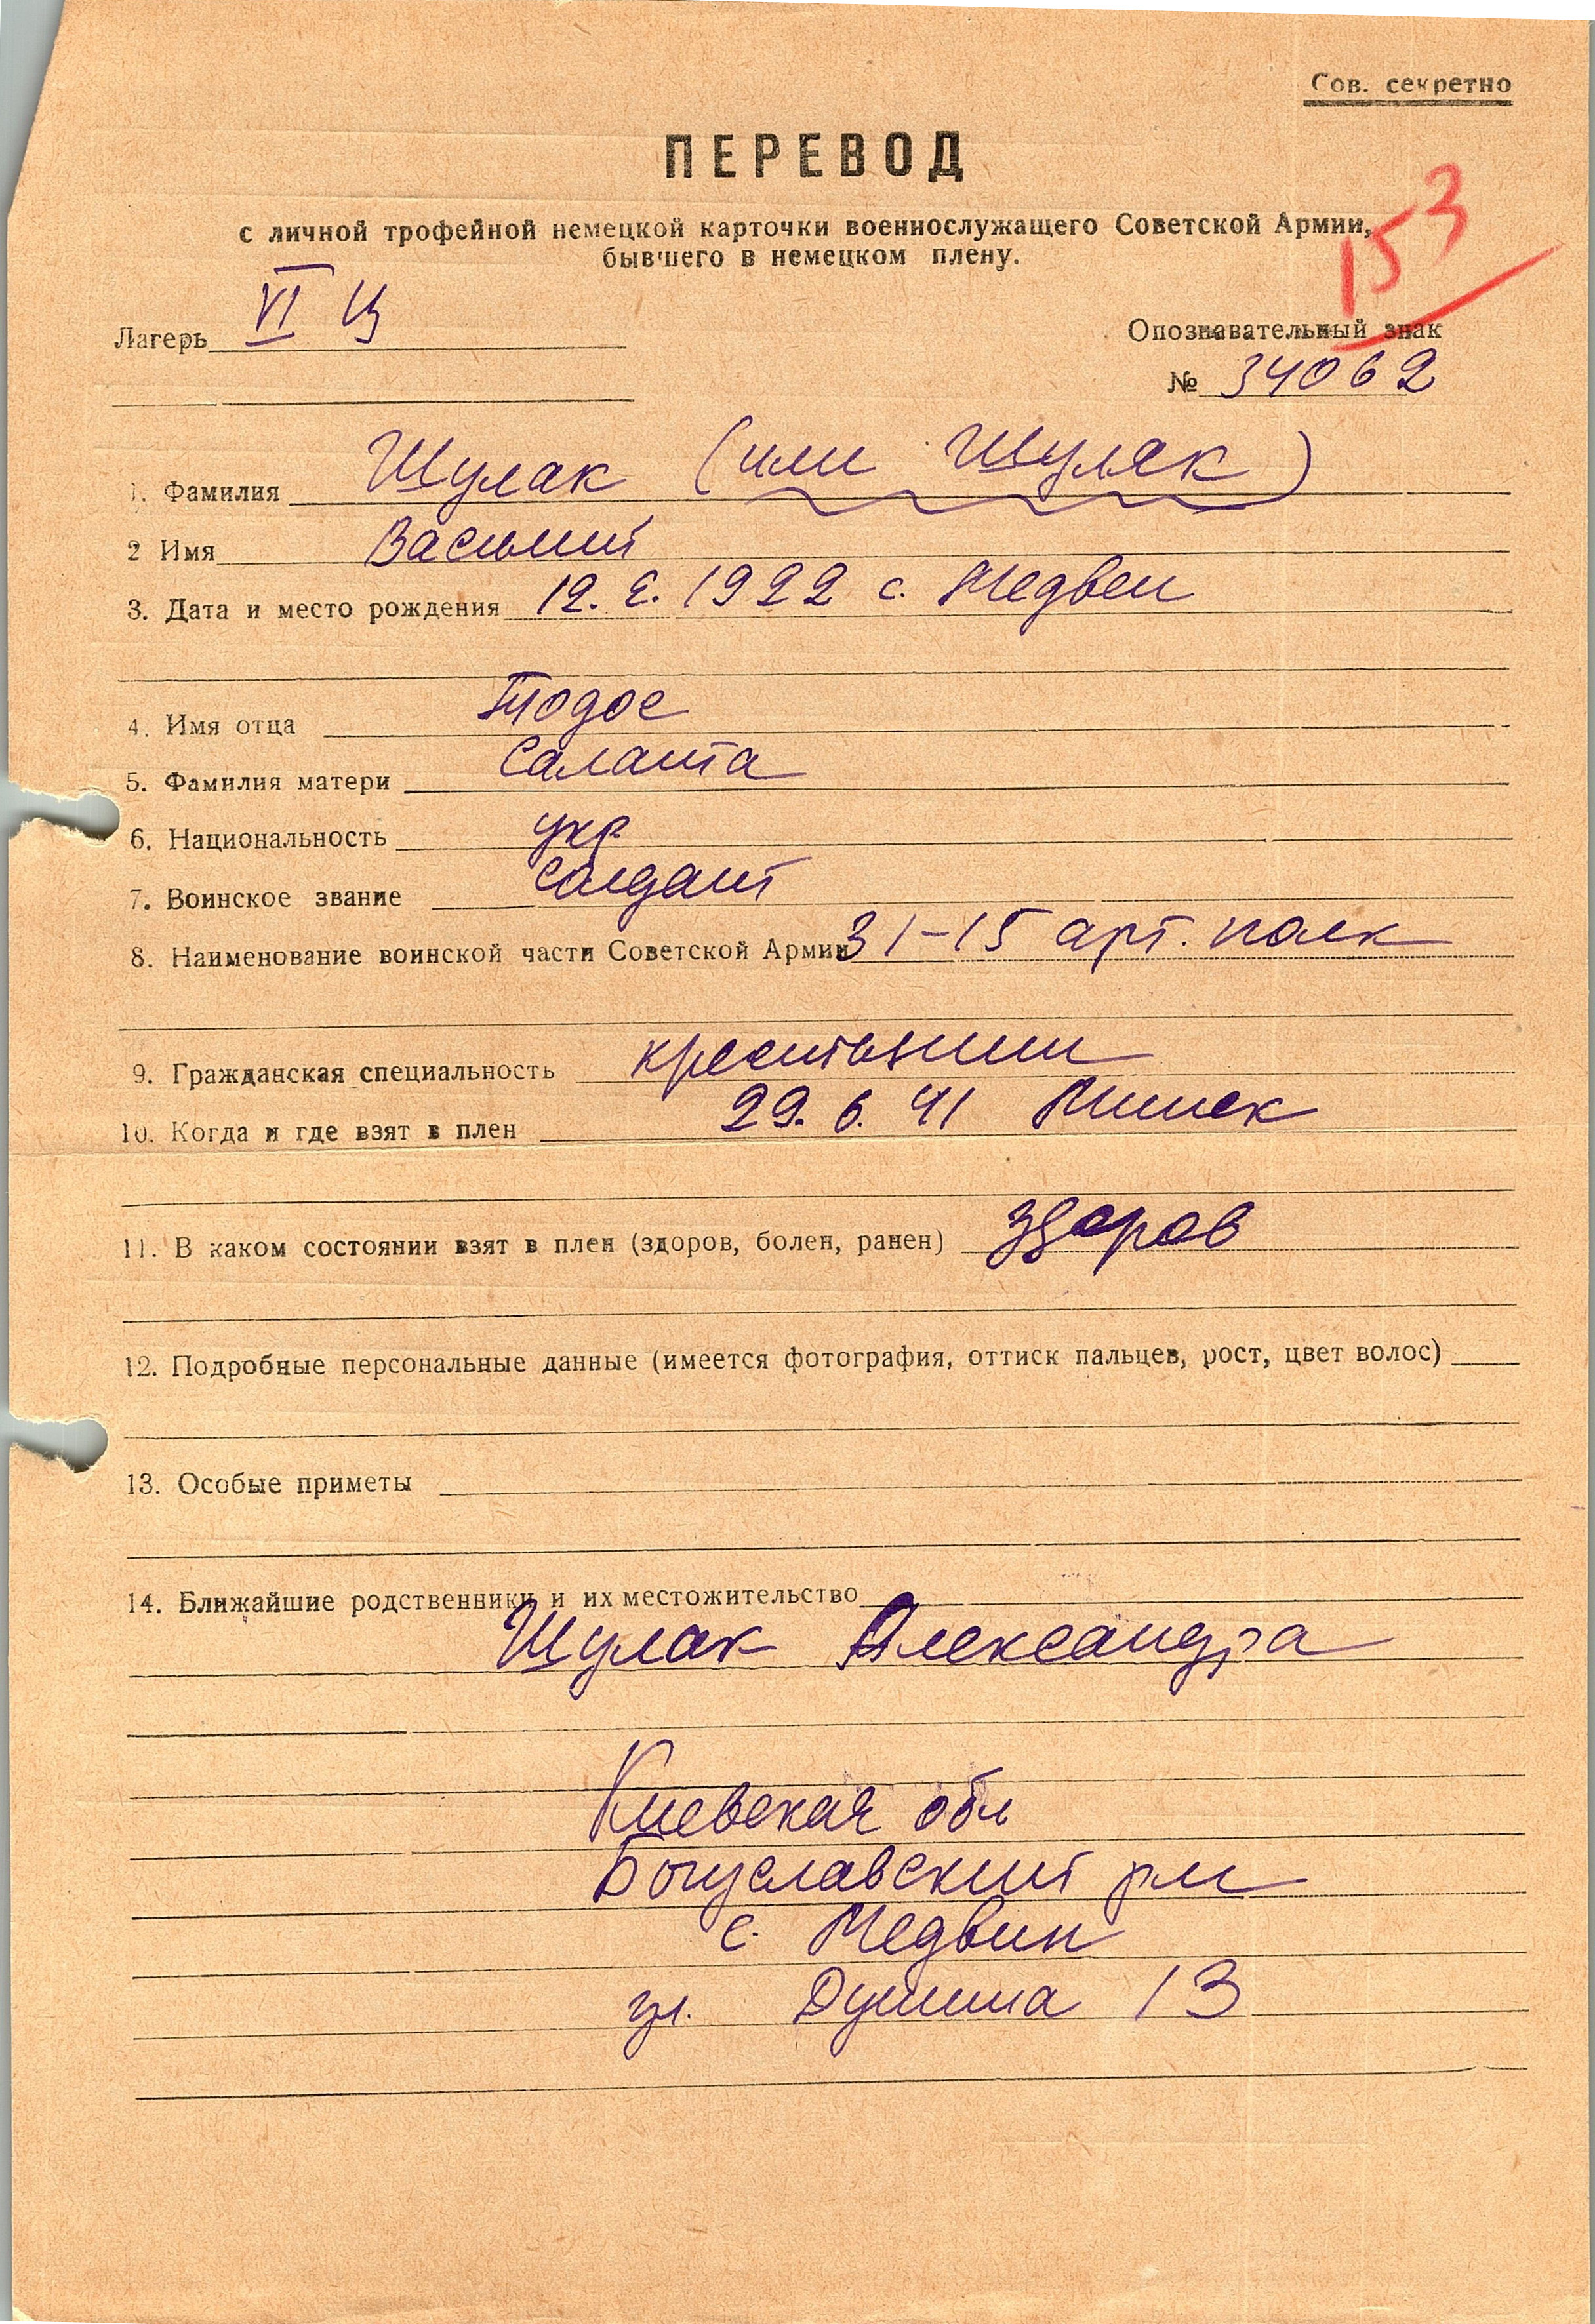 Сов. секретно
ПЕРЕВОД
с личной трофейной немецкой карточки военнослужащего Советской Армии,
бывшего в немецком плену.
153
Лагерь VI Ц
Опознавательный знак
№ 34062
1. Фамилия Щулак (или Шуляк)
2 Имя Василий
3. Дата и место рождения 12. 2. 1922 с. Медвен
4. Имя отца Тодос
5. Фамилия матери Саланта
6. Национальность укр
7. Воинское звание солдат
8. Наименование воинской части Советской Армии 31-15 арт. полк
9. Гражданская специальность крестьянин
10. Когда и где взят в плен 29. 6. 41 Минск
11. В каком состоянии взят в плен (здоров, болен, ранен) здоров
12. Подробные персональные данные (имеется фотография, оттиск пальцев, рост, цвет волос)
13. Особые приметы
14. Ближайшие родственники и их местожительство
Щулак Александра
Киевская обл
Богуславский рн
с. Медвин
ул. 13